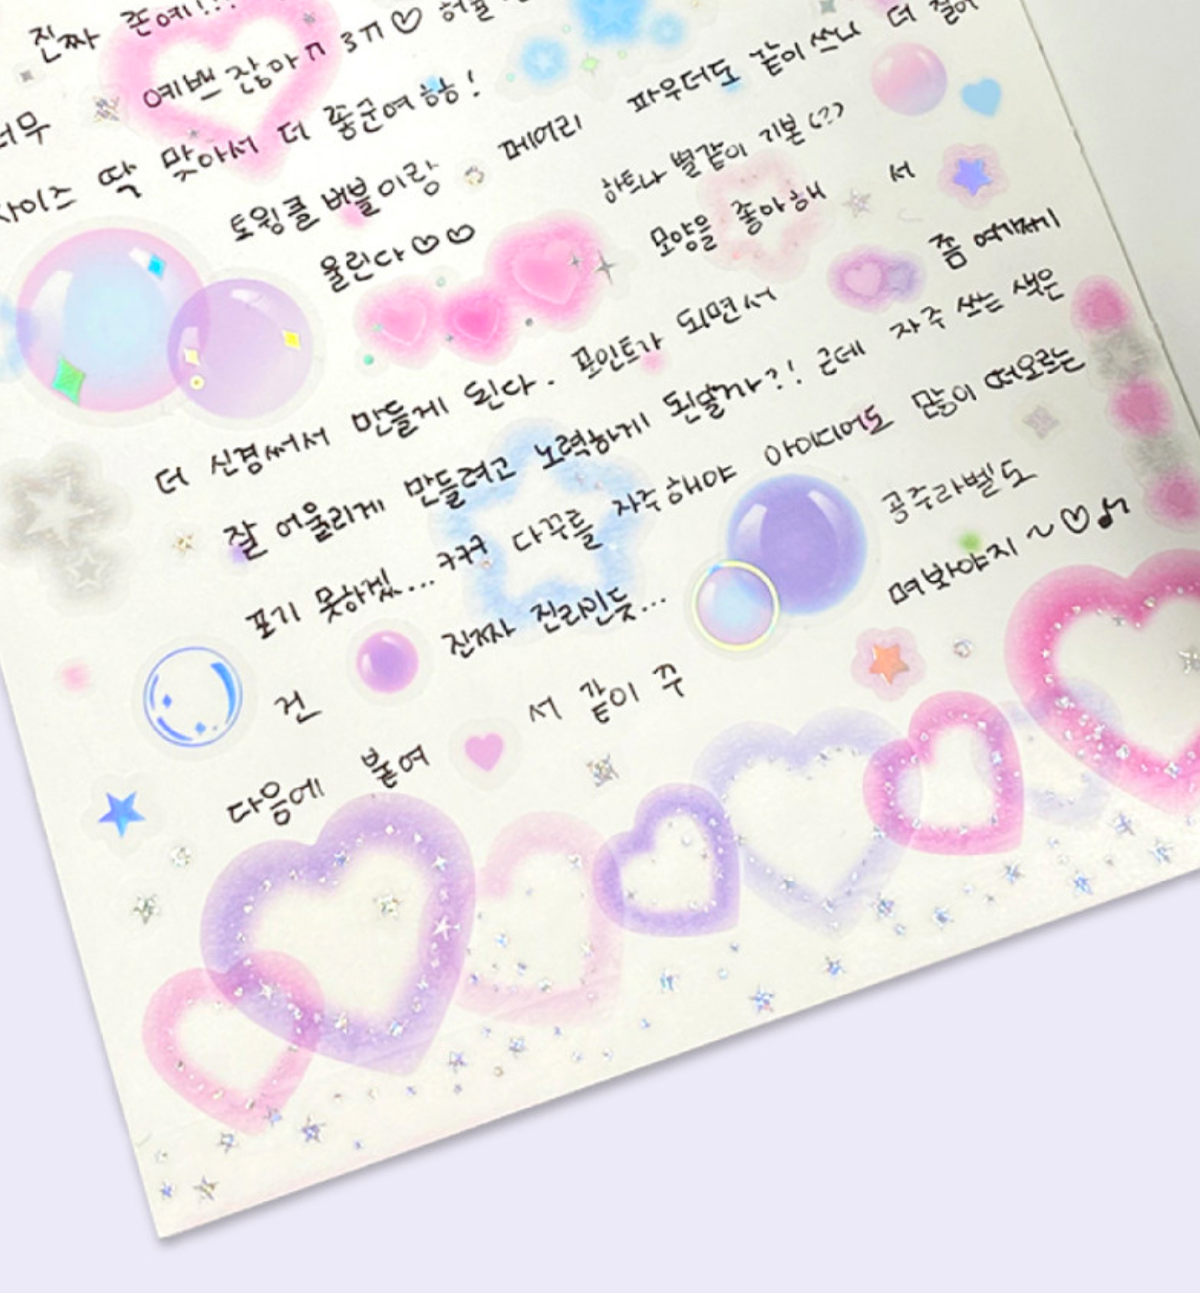 진짜 존예!!!
너무 예쁘잖아ㅠㅠ♡
사이즈 딱 맞아서 더 좋군여 핳!
토윙클 버블이랑 페어리 파우더도 같이 쓰니 더 잘어
울린다♡♡
하트나 별같이 기본(??)
모양을 좋아해 서 좀 여기저기
더 신경써서 만들게 된다. 포인트가 되면서
잘 어울리게 만들려고 노력하게 된달까?! 근데 자주 쓰는 색은
포기 못하겠...ㅋㅋㅋ 다꾸를 자주해야 아이디어도 많이 떠오르는
건 진짜 진리인듯...
다음에 붙여 서 같이 꾸 며봐야지~♡♪
공주라벨도